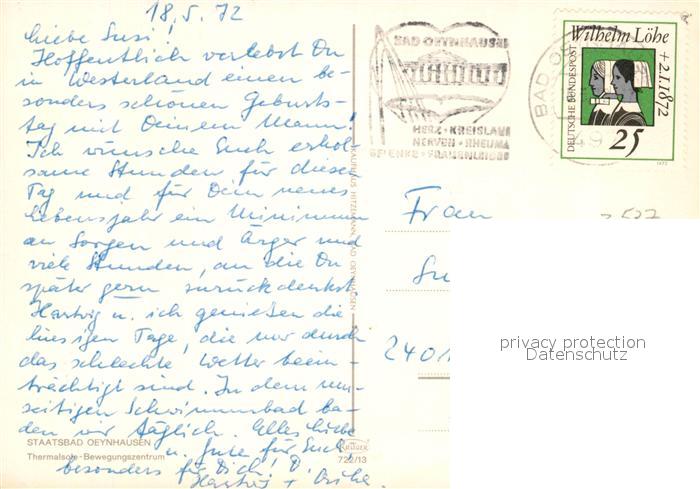 18.5.72
Liebe Susi!
Hoffentlich verlebst Du
in Westerland einen be-
sonders schönen Geburts-
tag mit Deinem Mann!
Ich wünsche Euch erhol-
same Stunden für diesen
Tag und für Dein neues
Lebensjahr ein Minimum
an Sorgen und Ärger und
viele Stunden, an die Du
später gern zurückdenkst.
Hartwig u. ich genießen die
hiesigen Tage, die nur durch
das schlechte Wetter beein-
trächtigt sind. In dem
Schwimmbad ba-
den wir täglich. Alles Liebe
u. Gute für Euch,
besonders für Dich!
STAATSBAD OEYNHAUSEN
Thermalsole-Bewegungszentrum
KRÜGER
722/13
KAUFHAUS HITZEMANN, BAD OEYNHAUSEN
BAD OEYNHAUSEN
HERZ-KREISLAUF
NERVEN-RHEUMA
GELENKE-FRAUENLEIDEN
BAD OE
49
Wilhelm Löhe
+2.1.1872
DEUTSCHE BUNDESPOST
25
1972
Frau
2401
privacy protection
Datenschutz